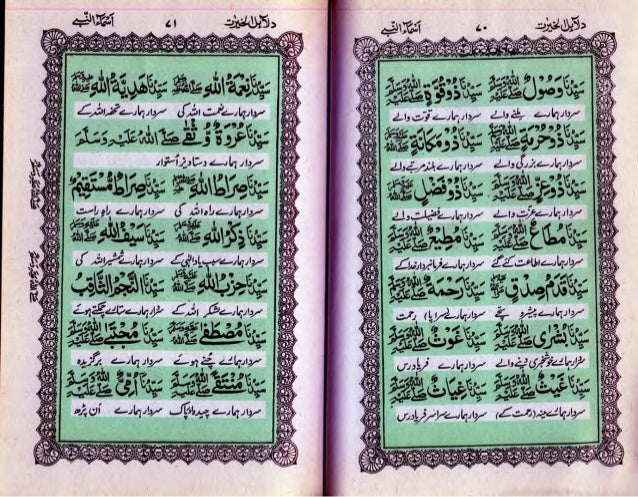 دلائل الخیرات ٧٠ اَسْمَاءُ النَّبِی
سَيِّدُنَا وَصُوْلٌ صلى الله عليه وسلم سَيِّدُنَا ذُوْ قُوَّةٍ صلى الله عليه وسلم
سردار ہمارے ملنے والے سردار ہمارے قوت والے
سَيِّدُنَا ذُوْ حُرْمَةٍ صلى الله عليه وسلم سَيِّدُنَا ذُوْ مَكَانَةٍ صلى الله عليه وسلم
سردار ہمارے بزرگی والے سردار ہمارے بلند مرتبے والے
سَيِّدُنَا ذُوْ عِزٍّ صلى الله عليه وسلم سَيِّدُنَا ذُوْ فَضْلٍ صلى الله عليه وسلم
سردار ہمارے عزت والے سردار ہمارے فضیلت والے
سَيِّدُنَا مُطَاعٌ صلى الله عليه وسلم سَيِّدُنَا مُطِيْعٌ صلى الله عليه وسلم
سردار ہمارے اطاعت کئے گئے سردار ہمارے فرمانبردار خدا کے
سَيِّدُنَا قَدَمُ صِدْقٍ صلى الله عليه وسلم سَيِّدُنَا رَحْمَةٌ صلى الله عليه وسلم
سردار ہمارے پیشرو سچے سردار ہمارے (سراپا) رحمت
سَيِّدُنَا بُشْرٰى صلى الله عليه وسلم سَيِّدُنَا غَوْثٌ صلى الله عليه وسلم
سردار ہمارے خوشخبری دینے والے سردار ہمارے فریادرس
سَيِّدُنَا غَيْثٌ صلى الله عليه وسلم سَيِّدُنَا غِيَاثٌ صلى الله عليه وسلم
سردار ہمارے مینہ (رحمت کے) سردار ہمارے سراسر فریادرس
دلائل الخیرات ٧١ اَسْمَاءُ النَّبِی
سَيِّدُنَا نِعْمَةُ اللهِ صلى الله عليه وسلم سَيِّدُنَا هَدِيَّةُ اللهِ صلى الله عليه وسلم
سردار ہمارے نعمت اللہ کی سردار ہمارے تحفہ اللہ کے
سَيِّدُنَا عُرْوَةٌ وُثْقٰى صلى الله عليه وسلم
سردار ہمارے دستاویز استوار
سَيِّدُنَا صِرَاطُ اللهِ صلى الله عليه وسلم سَيِّدُنَا صِرَاطٌ مُسْتَقِيْمٌ
سردار ہمارے راہ اللہ کی سردار ہمارے راہ راست
سَيِّدُنَا ذِكْرُ اللهِ صلى الله عليه وسلم سَيِّدُنَا سَيْفُ اللهِ صلى الله عليه وسلم
سردار ہمارے سبب یاد الٰہی کے سردار ہمارے شمشیر اللہ کی
سَيِّدُنَا حِزْبُ اللهِ صلى الله عليه وسلم سَيِّدُنَا النَّجْمُ الثَّاقِبُ
سردار ہمارے لشکر اللہ کے سردار ہمارے ستارے چمکتے ہوئے
سَيِّدُنَا مُصْطَفٰى صلى الله عليه وسلم سَيِّدُنَا مُجْتَبٰى صلى الله عليه وسلم
سردار ہمارے چنے ہوئے سردار ہمارے برگزیدہ
سَيِّدُنَا مُنْتَقٰى صلى الله عليه وسلم سَيِّدُنَا اُمِّيٌّ صلى الله عليه وسلم
سردار ہمارے چیدہ و پاک سردار ہمارے ان پڑھ